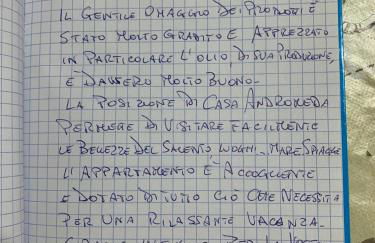 IL GENTILE OMAGGIO DEI PRODOTTI È
STATO MOLTO GRADITO E APPREZZATO
IN PARTICOLARE L'OLIO, DI SUA PRODUZIONE,
È DAVVERO MOLTO BUONO-
LA POSIZIONE DI CASA ANDROMEDA
PERMETTE DI VISITARE FACILMENTE
LE BELLEZZE DEL SALENTO, LUOGHI, MARE, SPIAGGE
L'APPARTAMENTO È ACCOGLIENTE
E DOTATO DI TUTTO CIÒ CHE NECESSITA
PER UNA RILASSANTE VACANZA-